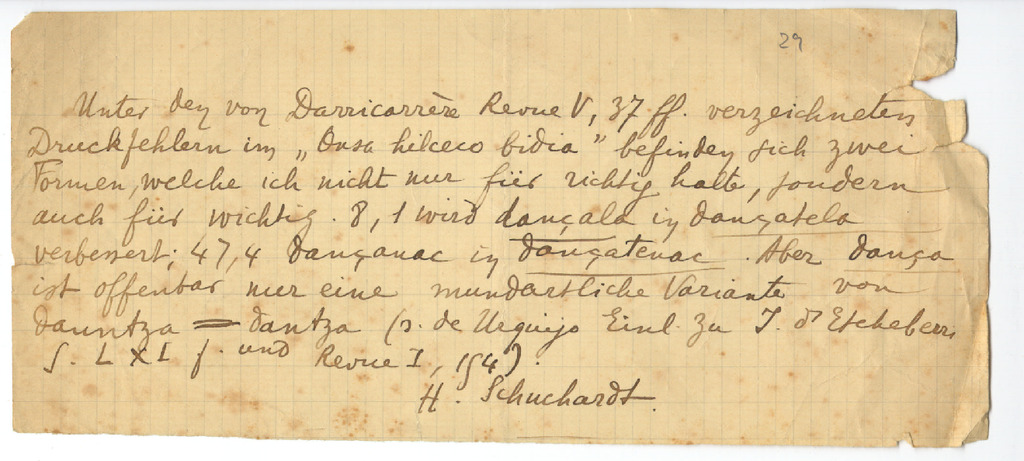 29
Unter den von Darricarrère Revue V, 37 ff. verzeichneten
Druckfehlern im „Onsa hilceco bidia" befinden sich zwei
Formen, welche ich nicht nur für richtig halte, sondern
auch für wichtig. 8, 1 wird dançala in dançatela
verbessert; 47,4 dançanac in dançatenac. Aber dança
ist offenbar nur eine mundartliche Variante von
dauntza = dantza (s. de Urquijo Einl. zu J. d' Etcheberri
S. LXI f. und Revue I, 154).
H. Schuchardt.